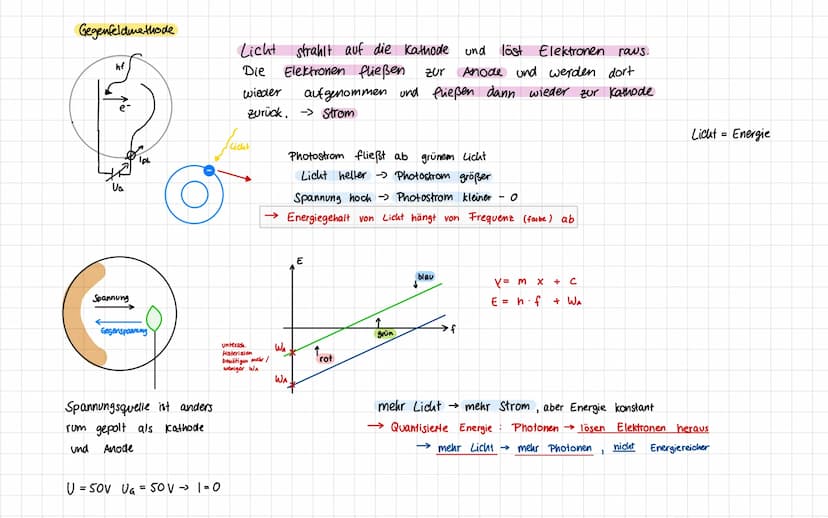 Gegenfeldmethode
Licht strahlt auf die Kathode und löst Elektronen raus.
Die Elektronen fließen zur Anode und werden dort
wieder aufgenommen und fließen dann wieder zur Kathode
zurück. → Strom
hf
e⁻
Iph
Ua
Licht = Energie
Licht
Photostrom fließt ab grünem Licht
Licht heller → Photostrom größer
Spannung hoch → Photostrom kleiner - 0
→ Energiegehalt von Licht hängt von Frequenz (farbe) ab
Spannung
Gegenspannung
E
blau
grün
f
rot
WA
WA
Materialien
benötigen mehr/
weniger WA
y = m x + c
E = h · f + WA
Spannungsquelle ist anders
rum gepolt als Kathode
und Anode
U = 50V Ua = 50V → I = 0
mehr Licht → mehr Strom, aber Energie konstant
→ Quantisierte Energie: Photonen → lösen Elektronen heraus
→ mehr Licht → mehr Photonen, nicht Energiereicher